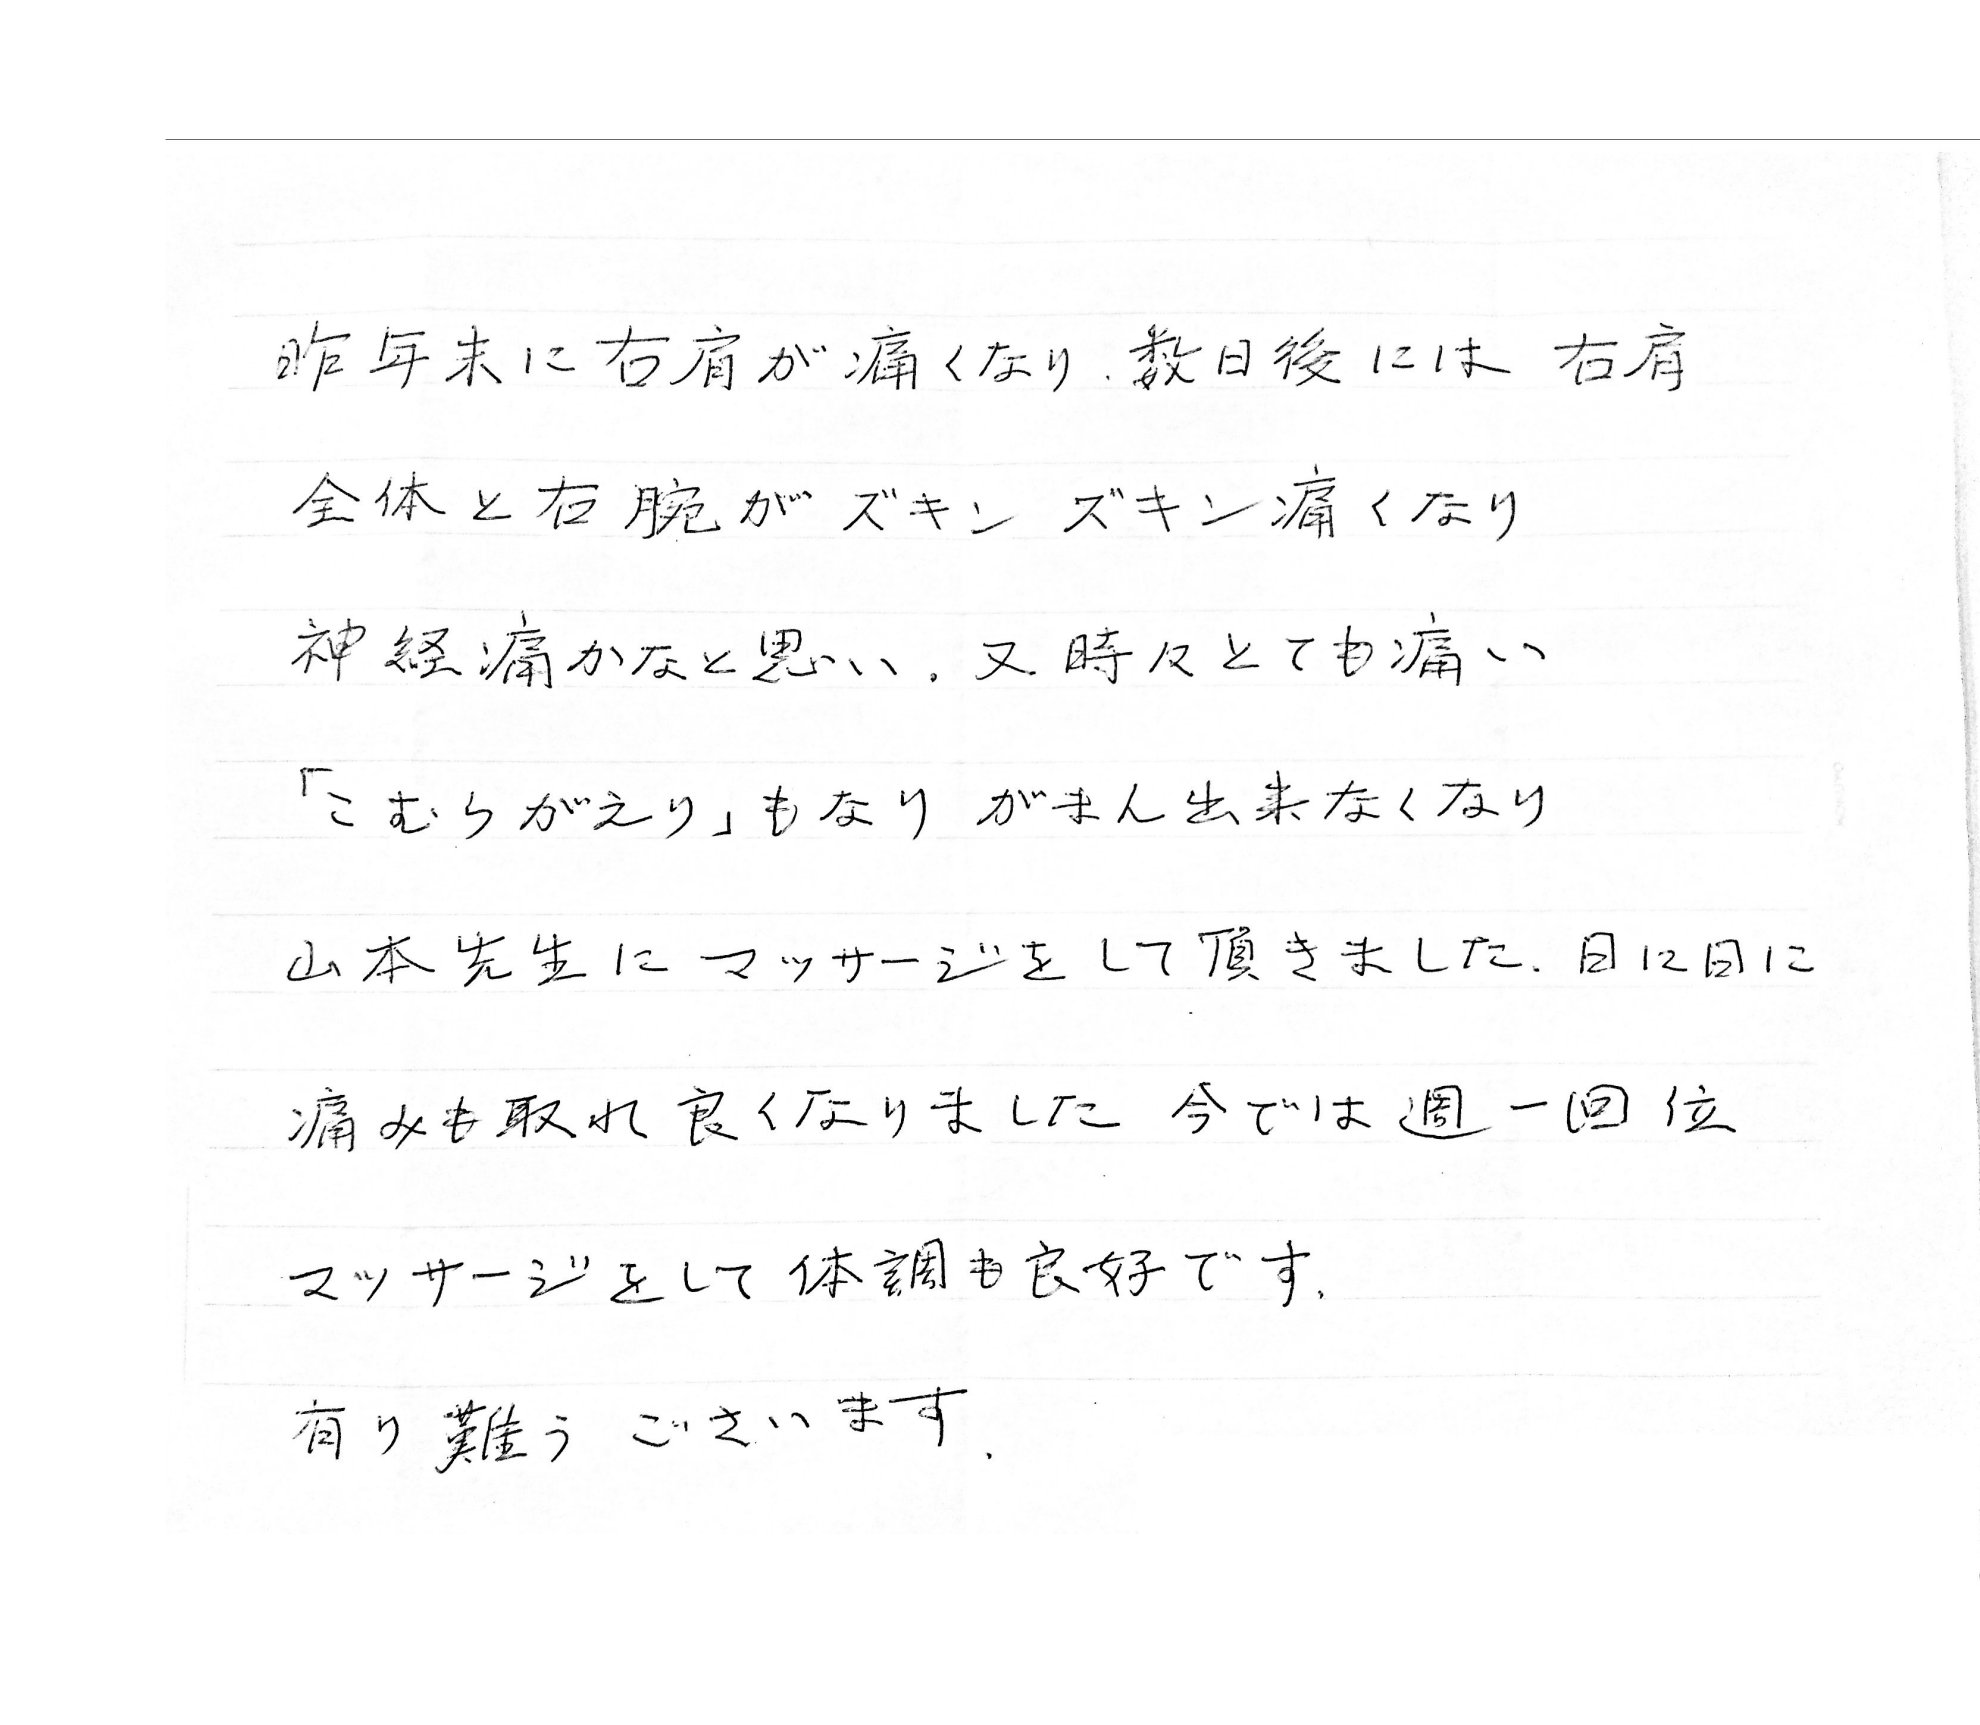 昨年末に右肩が痛くなり、数日後には 右肩
全体と右腕がズキン ズキン痛くなり
神経痛かなと思い、又時々とても痛い
「こむらがえり」もなり がまん出来なくなり
山本先生にマッサージをして頂きました。日に日に
痛みも取れ良くなりました 今では週一回位
マッサージをして体調も良好です。
有り難うございます。